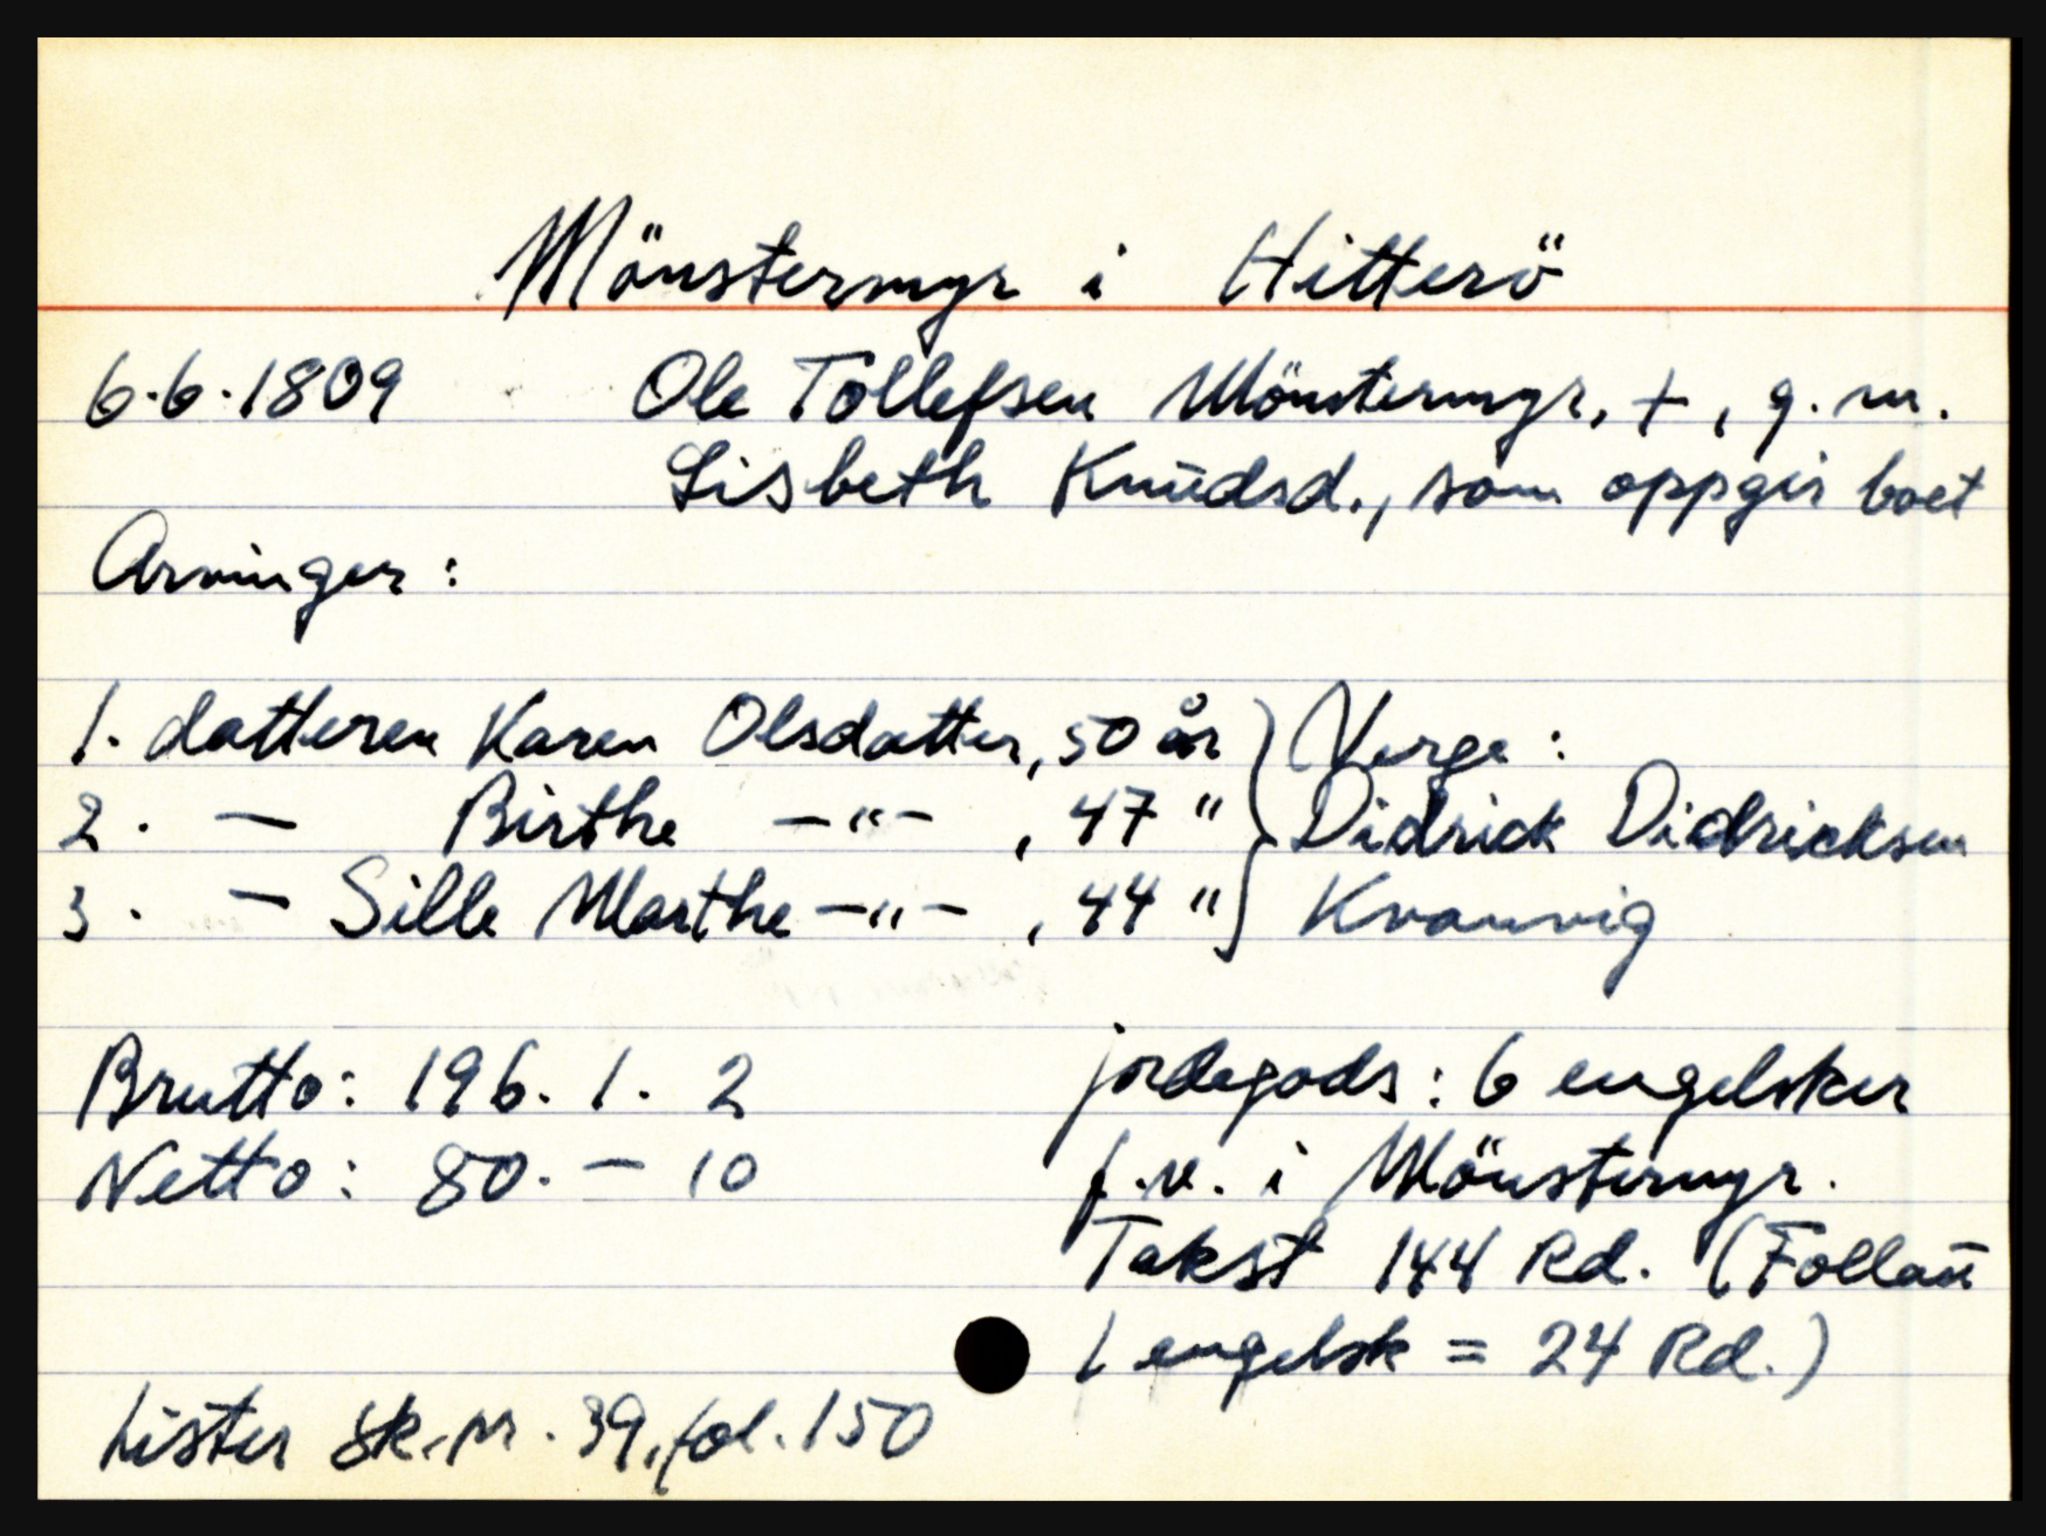 Mönstermyr i Hitterö
6.6.1809 Ole Tollefsen Mönstermyr, +, g.m.
Lisbeth Knudsd., som oppgir boet
Arvinger:
1. datteren Karen Olsdatter, 50 år } Verge:
2. — Birthe —"— , 47 " } Didrick Didricksen
3. — Sille Marthe —"— , 44 " } Kvanvig
Brutto: 196. 1. 2 jordegods: 6 engelsker
Netto: 80. — 10 f.v. i Mönstermyr.
Takst 144 Rd. (Follaū
1 engelsk = 24 Rd.)
Lister sk.nr. 39, fol. 150